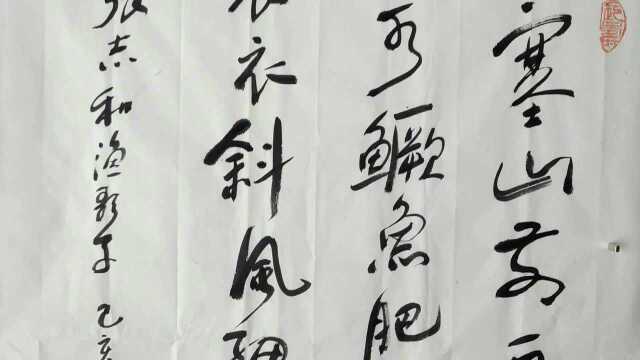 塞山前
水鳜鱼肥
衣斜风细
张志和渔歌子 己亥